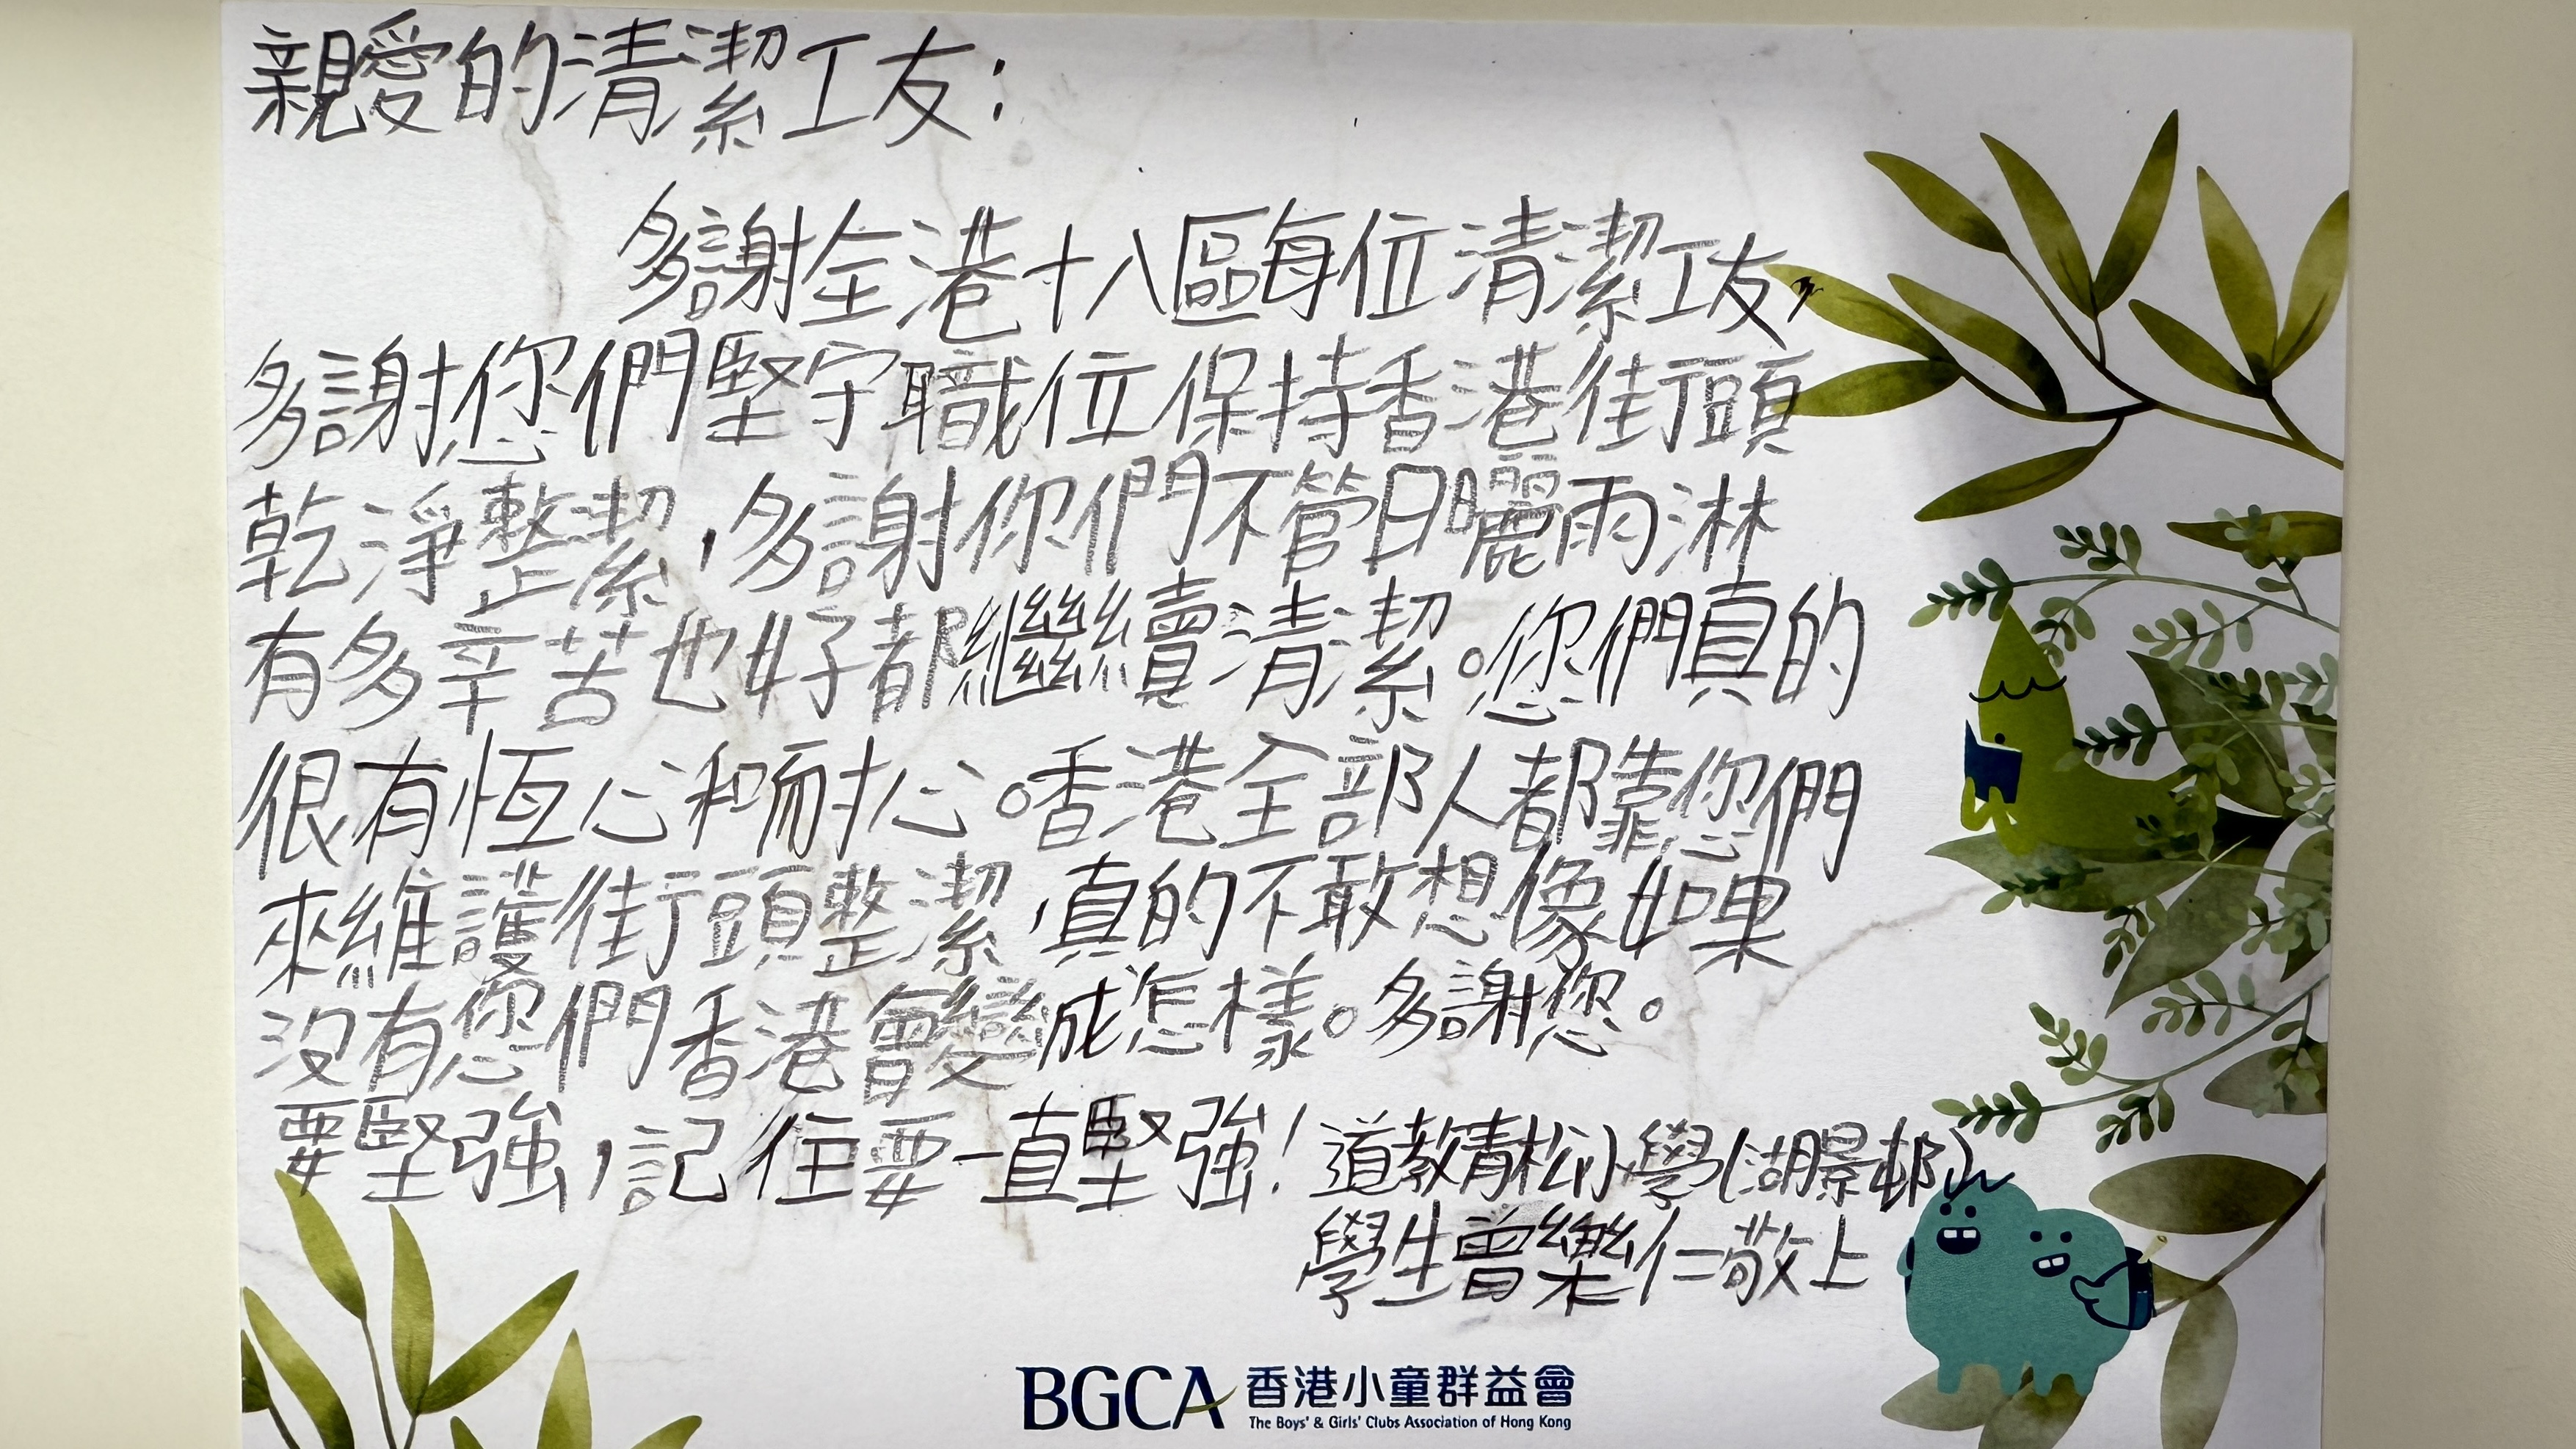 親愛的清潔工友：
多謝全港十八區每位清潔工友，
多謝您們堅守職位保持香港街頭
乾淨整潔，多謝你們不管日曬雨淋
有多辛苦也好都繼續清潔。您們真的
很有恆心和耐心。香港全部人都靠您們
來維護街頭整潔，真的不敢想像如果
沒有您們香港會變成怎樣。多謝您。
要堅強，記住要一直堅強！道教青松小學（湖景邨）
學生曾樂仁敬上
BGCA 香港小童群益會
The Boys' & Girls' Clubs Association of Hong Kong